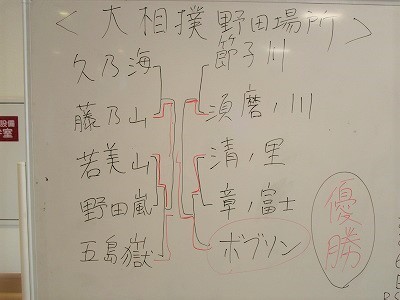 ＜大相撲野田場所＞
久乃海
藤乃山
若美山
野田嵐
五島嶽
節子川
須磨ノ川
清ノ里
章ノ富士
ボブソン
優勝
設備
室